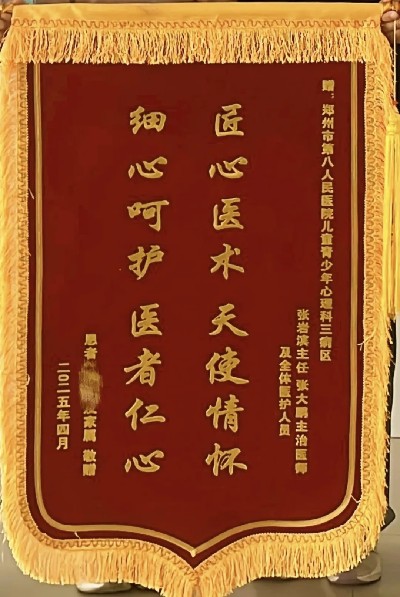 赠：郑州市第八人民医院儿童青少年心理科三病区
张岩滨主任 张大鹏主治医师
及全体医护人员
匠心医术 天使情怀
细心呵护 医者仁心
患者 及家属 敬赠
二〇二五年四月